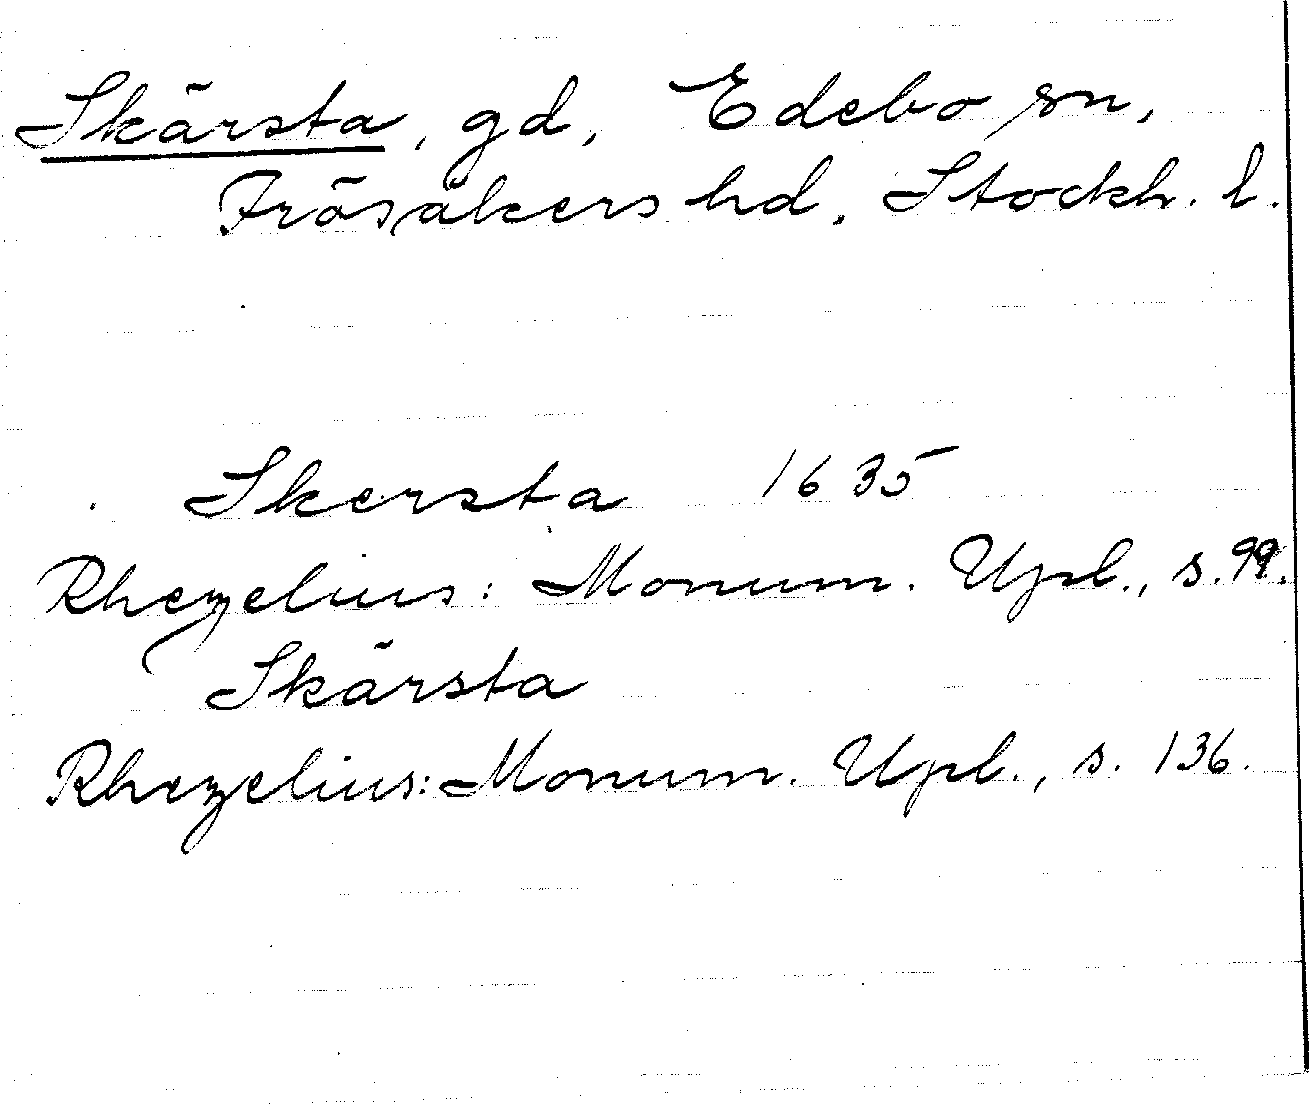 Skärsta, gd, Edebo sn,
Frösåkers hd. Stockh. l.
Skersta 1635
Rhezelius: Monum. Upl., s. 99.
Skärsta
Rhezelius: Monum. Upl., s. 136.